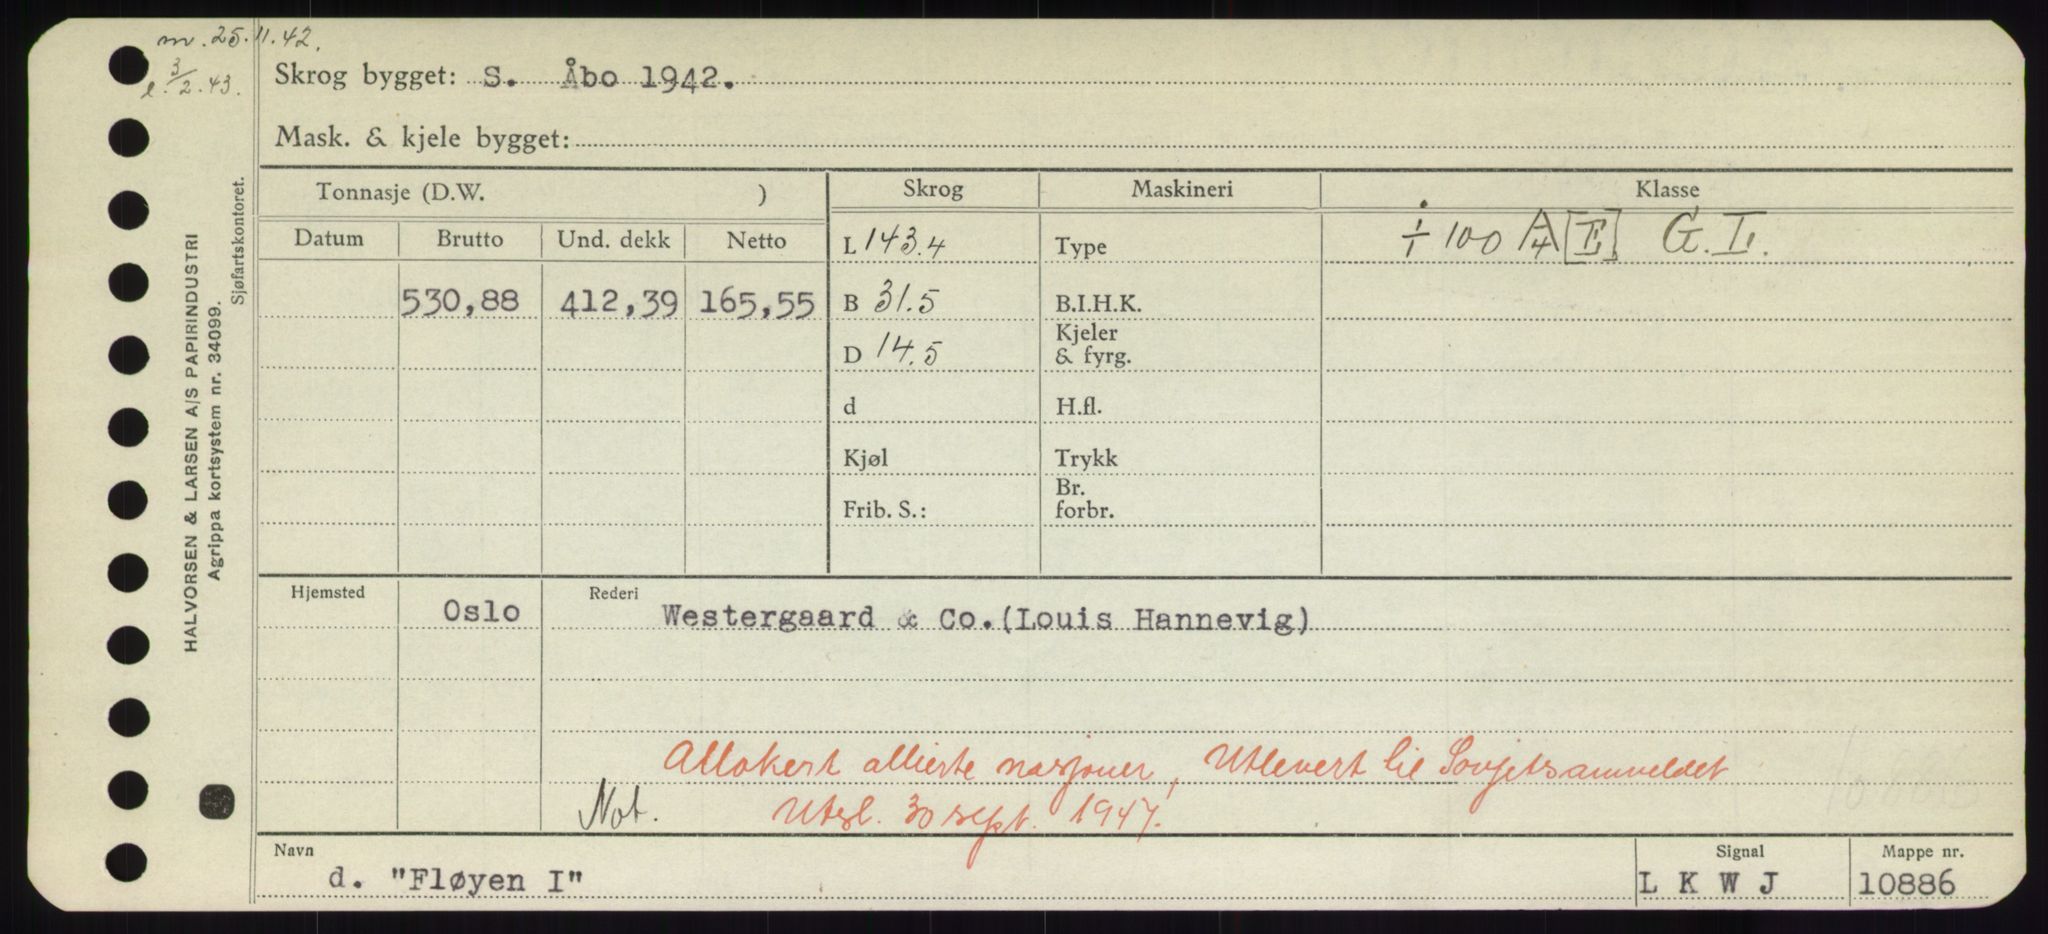 m. 25.11.42.
l. 3/2.43.
Skrog bygget: S. Åbo 1942.
Mask. & kjele bygget:
Tonnasje (D.W. )
Skrog
Maskineri
Klasse
Datum
Brutto
Und. dekk
Netto
L 143.4
Type
100 A/4 [E] G.I.
530,88
412,39
165,55
B 31.5
B.I.H.K.
D 14.5
Kjeler
& fyrg.
d
H.fl.
Kjøl
Trykk
Frib. S.:
Br.
forbr.
Hjemsted
Oslo
Rederi
Westergaard & Co.(Louis Hannevig)
Allokert allierte nasjoner, Utlevert til Sovjetsamveldet
Not.
Utsl. 30 sept. 1947.
Navn
d. "Fløyen I"
Signal
L K W J
Mappe nr.
10886
HALVORSEN & LARSEN A/S PAPIRINDUSTRI
Agrippa kortsystem nr. 34099.
Sjøfartskontoret.